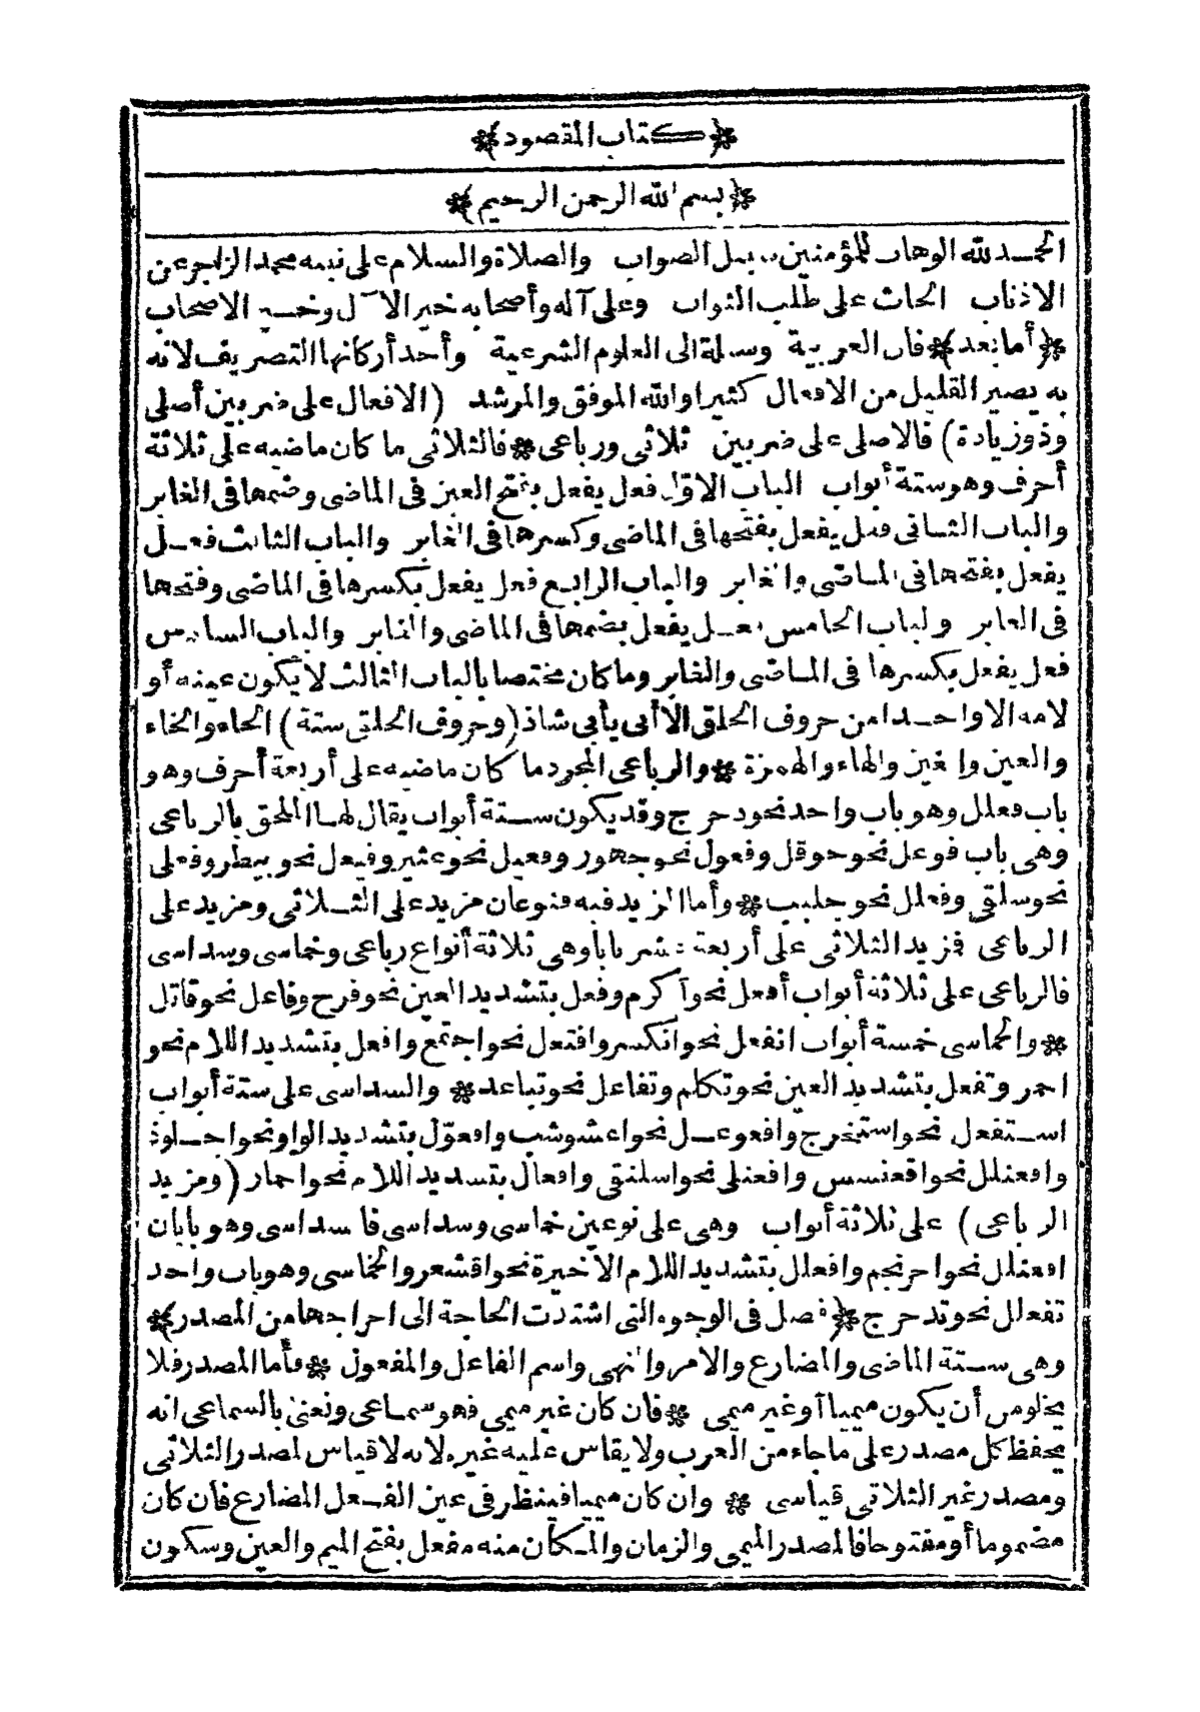 ﴿كتاب المقصود﴾
﴿بسم الله الرحمن الرحيم﴾
الحمد لله الوهاب للمؤمنين سبيل الصواب والصلاة والسلام على نبيه محمد الزاجر عن
الاذناب الحاث على طلب الثواب وعلى آله وأصحابه خير الآل وخير الاصحاب
﴿أما بعد﴾ فان العربية وسيلة الى العلوم الشرعية وأحد أركانها التصريف لانه
به يصير القليل من الافعال كثيرا والله الموفق والمرشد (الافعال على ضربين أصلى
وذو زيادة) فالاصلى على ضربين ثلاثى ورباعى * فالثلاثى ما كان ماضيه على ثلاثة
أحرف وهو ستة أبواب الباب الاوّل فعل يفعل بفتح العين فى الماضى وضمها فى الغابر
والباب الثانى فعل يفعل بفتحها فى الماضى وكسرها فى الغابر والباب الثالث فعل
يفعل بفتحها فى الماضى والغابر والباب الرابع فعل يفعل بكسرها فى الماضى وفتحها
فى الغابر والباب الخامس فعل يفعل بضمها فى الماضى والغابر والباب السادس
فعل يفعل بكسرها فى الماضى والغابر وما كان مختصا بالباب الثالث لا يكون عينه أو
لامه الا واحدا من حروف الحلق الا أبى يأبى شاذ (وحروف الحلق ستة) الحاء والخاء
والعين والغين والهاء والهمزة * والرباعى المجرد ما كان ماضيه على أربعة أحرف وهو
باب فعلل وهو باب واحد نحو دحرج وقد يكون ستة أبواب يقال لها الملحق بالرباعى
وهى باب فوعل نحو حوقل وفعول نحو جهور وفعيل نحو عثير وفيعل نحو بيطر وفعلى
نحو سلقى وفعلل نحو جلبب * وأما المزيد فيه فنوعان مزيد على الثلاثى ومزيد على
الرباعى فمزيد الثلاثى على أربعة عشر بابا وهى ثلاثة أنواع رباعى وخماسى وسداسى
فالرباعى على ثلاثة أبواب أفعل نحو أكرم وفعل بتشديد العين نحو فرح وفاعل نحو قاتل
* والخماسى خمسة أبواب انفعل نحو انكسر وافتعل نحو اجتمع وافعل بتشديد اللام نحو
احمر وتفعل بتشديد العين نحو تكلم وتفاعل نحو تباعد * والسداسى على ستة أبواب
استفعل نحو استخرج وافعوعل نحو اعشوشب وافعوّل بتشديد الواو نحو اجلوذ
وافعنلل نحو اقعنسس وافعنلى نحو اسلنقى وافعال بتشديد اللام نحو احمار (ومزيد
الرباعى) على ثلاثة أبواب وهى على نوعين خماسى وسداسى فالسداسى وهو بابان
افعنلل نحو احرنجم وافعلل بتشديد اللام الاخيرة نحو اقشعر والخماسى وهو باب واحد
تفعلل نحو تدحرج ﴿فصل فى الوجوه التى اشتدت الحاجة الى اخراجها من المصدر﴾
وهى ستة الماضى والمضارع والامر والنهى واسم الفاعل والمفعول * فأما المصدر فلا
يخلو من أن يكون ميميا أو غير ميمى * فان كان غير ميمى فهو سماعى ونعنى بالسماعى انه
يحفظ كل مصدر على ما جاء من العرب ولا يقاس عليه غيره لانه لا قياس لمصدر الثلاثى
ومصدر غير الثلاثى قياسى * وان كان ميميا فينظر فى عين الفعل المضارع فان كان
مضموما أو مفتوحا فالمصدر الميمى والزمان والمكان منه مفعل بفتح الميم والعين وسكون